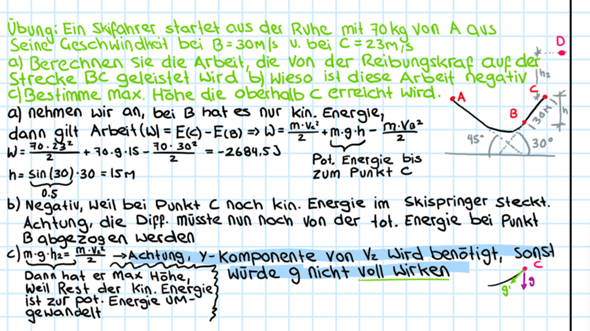 Übung: Ein Skifahrer startet aus der Ruhe mit 70kg von A aus
Seine Geschwindkeit bei B=30m/s u. bei C=23m/s
a) Berechnen sie die Arbeit, die von der Reibungskraf auf der
Strecke BC geleistet wird b) Wieso ist diese Arbeit negativ
c) Bestimme max. Höhe die oberhalb C erreicht wird.
a) nehmen wir an, bei B hat es nur kin. Energie,
dann gilt Arbeit(W) = E(C)-E(B) ⇒ W = m·Vc²/2 + m·g·h - m·VB²/2
W = 70·23²/2 + 70·g·15 - 70·30²/2 = -2684.5J
Pot. Energie bis
zum Punkt C
h = sin(30)·30 = 15m
0.5
b) Negativ, weil bei Punkt C noch kin. Energie im Skispringer steckt.
Achtung, die Diff. müsste nun noch von der tot. Energie bei Punkt
B abgezogen werden
c) m·g·h₂ = m·V₂²/2 → Achtung, y-Komponente von V₂ wird benötigt, sonst
würde g nicht voll wirken
Dann hat er Max Höhe,
weil Rest der Kin. Energie
ist zur pot. Energie um-
gewandelt
D
h₂
A
C
B
30m
h
45°
30°
C
g'
g